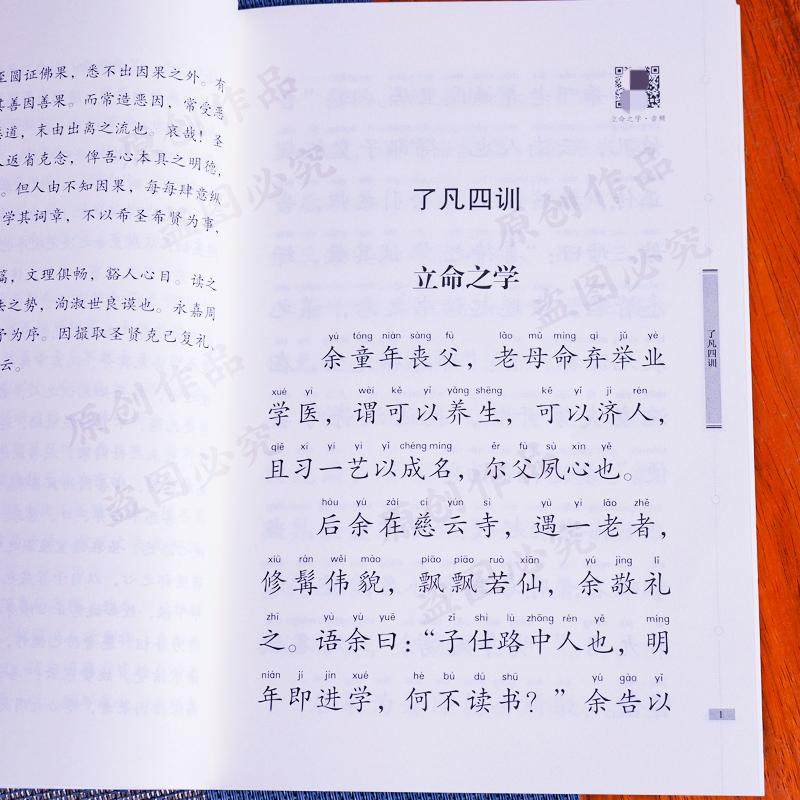 至圆证佛果，悉不出因果之外。有
其善因善果。而常造恶因，常受恶
善道，末由出离之流也。哀哉！圣
人返省克念，俾吾心本具之明德，
。但人由不知因果，每每肆意纵
学其词章，不以希圣希贤为事，
篇，文理俱畅，豁人心目。读之
法之势，洵淑世良谟也。永嘉周
予为序。因撮取圣贤克己复礼，
云。
立命之学·音频
了凡四训
立命之学
yú tóng nián sàng fù lǎo mǔ mìng qì jǔ yè
余童年丧父，老母命弃举业
xué yī wèi kě yǐ yǎng shēng kě yǐ jì rén
学医，谓可以养生，可以济人，
qiě xí yí yì yǐ chéng míng ěr fù sù xīn yě
且习一艺以成名，尔父夙心也。
hòu yú zài cí yún sì yù yì lǎo zhě
后余在慈云寺，遇一老者，
xiū rán wěi mào piāo piāo ruò xiān yú jìng lǐ
修髯伟貌，飘飘若仙，余敬礼
zhī yù yú yuē zǐ shì lù zhōng rén yě míng
之。语余曰：“子仕路中人也，明
nián jí jìn xué hé bù dú shū yú gào yǐ
年即进学，何不读书？”余告以
了凡四训
1
原创作品
盗图必究
原创作品
盗图必究
原创作品
盗图必究
原创作品
盗图必究